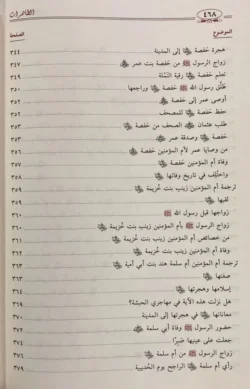 ٤٦٨
الطاهرات
الموضوع
الصفحة
هجرة حفصة ﵂ إلى المدينة ٣٤٤
زواج الرسول ﷺ من حفصة بنت عمر ﵂ ٣٤٧
تعلم حفصة ﵂ رقية النملة ٣٥٠
طلاق رسول الله ﷺ حفصة ﵂ وراجعها ٣٥١
أوصى عمر إلى حفصة ﵂ ٣٥٢
حفظ حفصة ﵂ للمصحف ٣٥٣
طلب عثمان ﵁ الصحف من حفصة ﵂
حفصة ﵂ وصدقة عمر ﵁
من وصايا عمر لأم المؤمنين حفصة ﵂
وفاة أم المؤمنين حفصة ﵂
واختلف في تاريخ وفاتها
ترجمة أم المؤمنين زينب بنت خُزيمة ﵂
لقبها ﵂
زواجها قبل رسول الله ﷺ
زواج الرسول ﷺ بأم المؤمنين زينب بنت خُزيمة ﵂
من خصائص أم المؤمنين زينب بنت خُزيمة ﵂
وفاة أم المؤمنين زينب بنت خُزيمة ﵂
ترجمة أم المؤمنين أم سلمة هند بنت أبي أمية ﵂
صفتها ﵂ ٣٧٣
إسلامها وهجرتها ﵂ ٣٧٤
هل نزلت هذه الآية في مهاجري الحبشة؟
معاناتها ﵂ في هجرتها إلى المدينة
حضور الرسول ﷺ وفاة أبي سلمة ﵁
جعلت على عينها صَبِرًا
زواج الرسول ﷺ من أم سلمة ﵂
رأي أم سلمة ﵂ الراجح يوم الحُديبية ٣٧٩